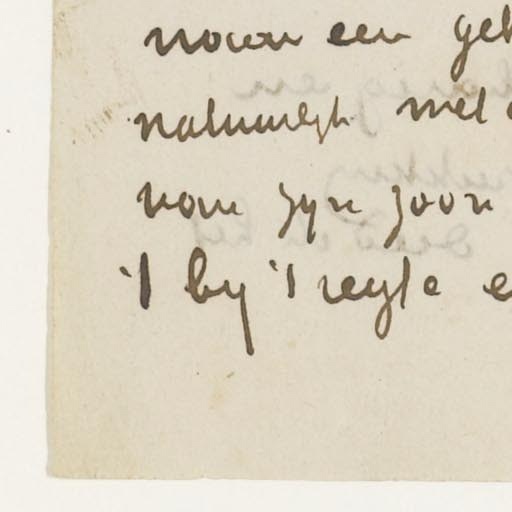 een gel
natuurlijk met
van zijn zoon
't bij 't regte e